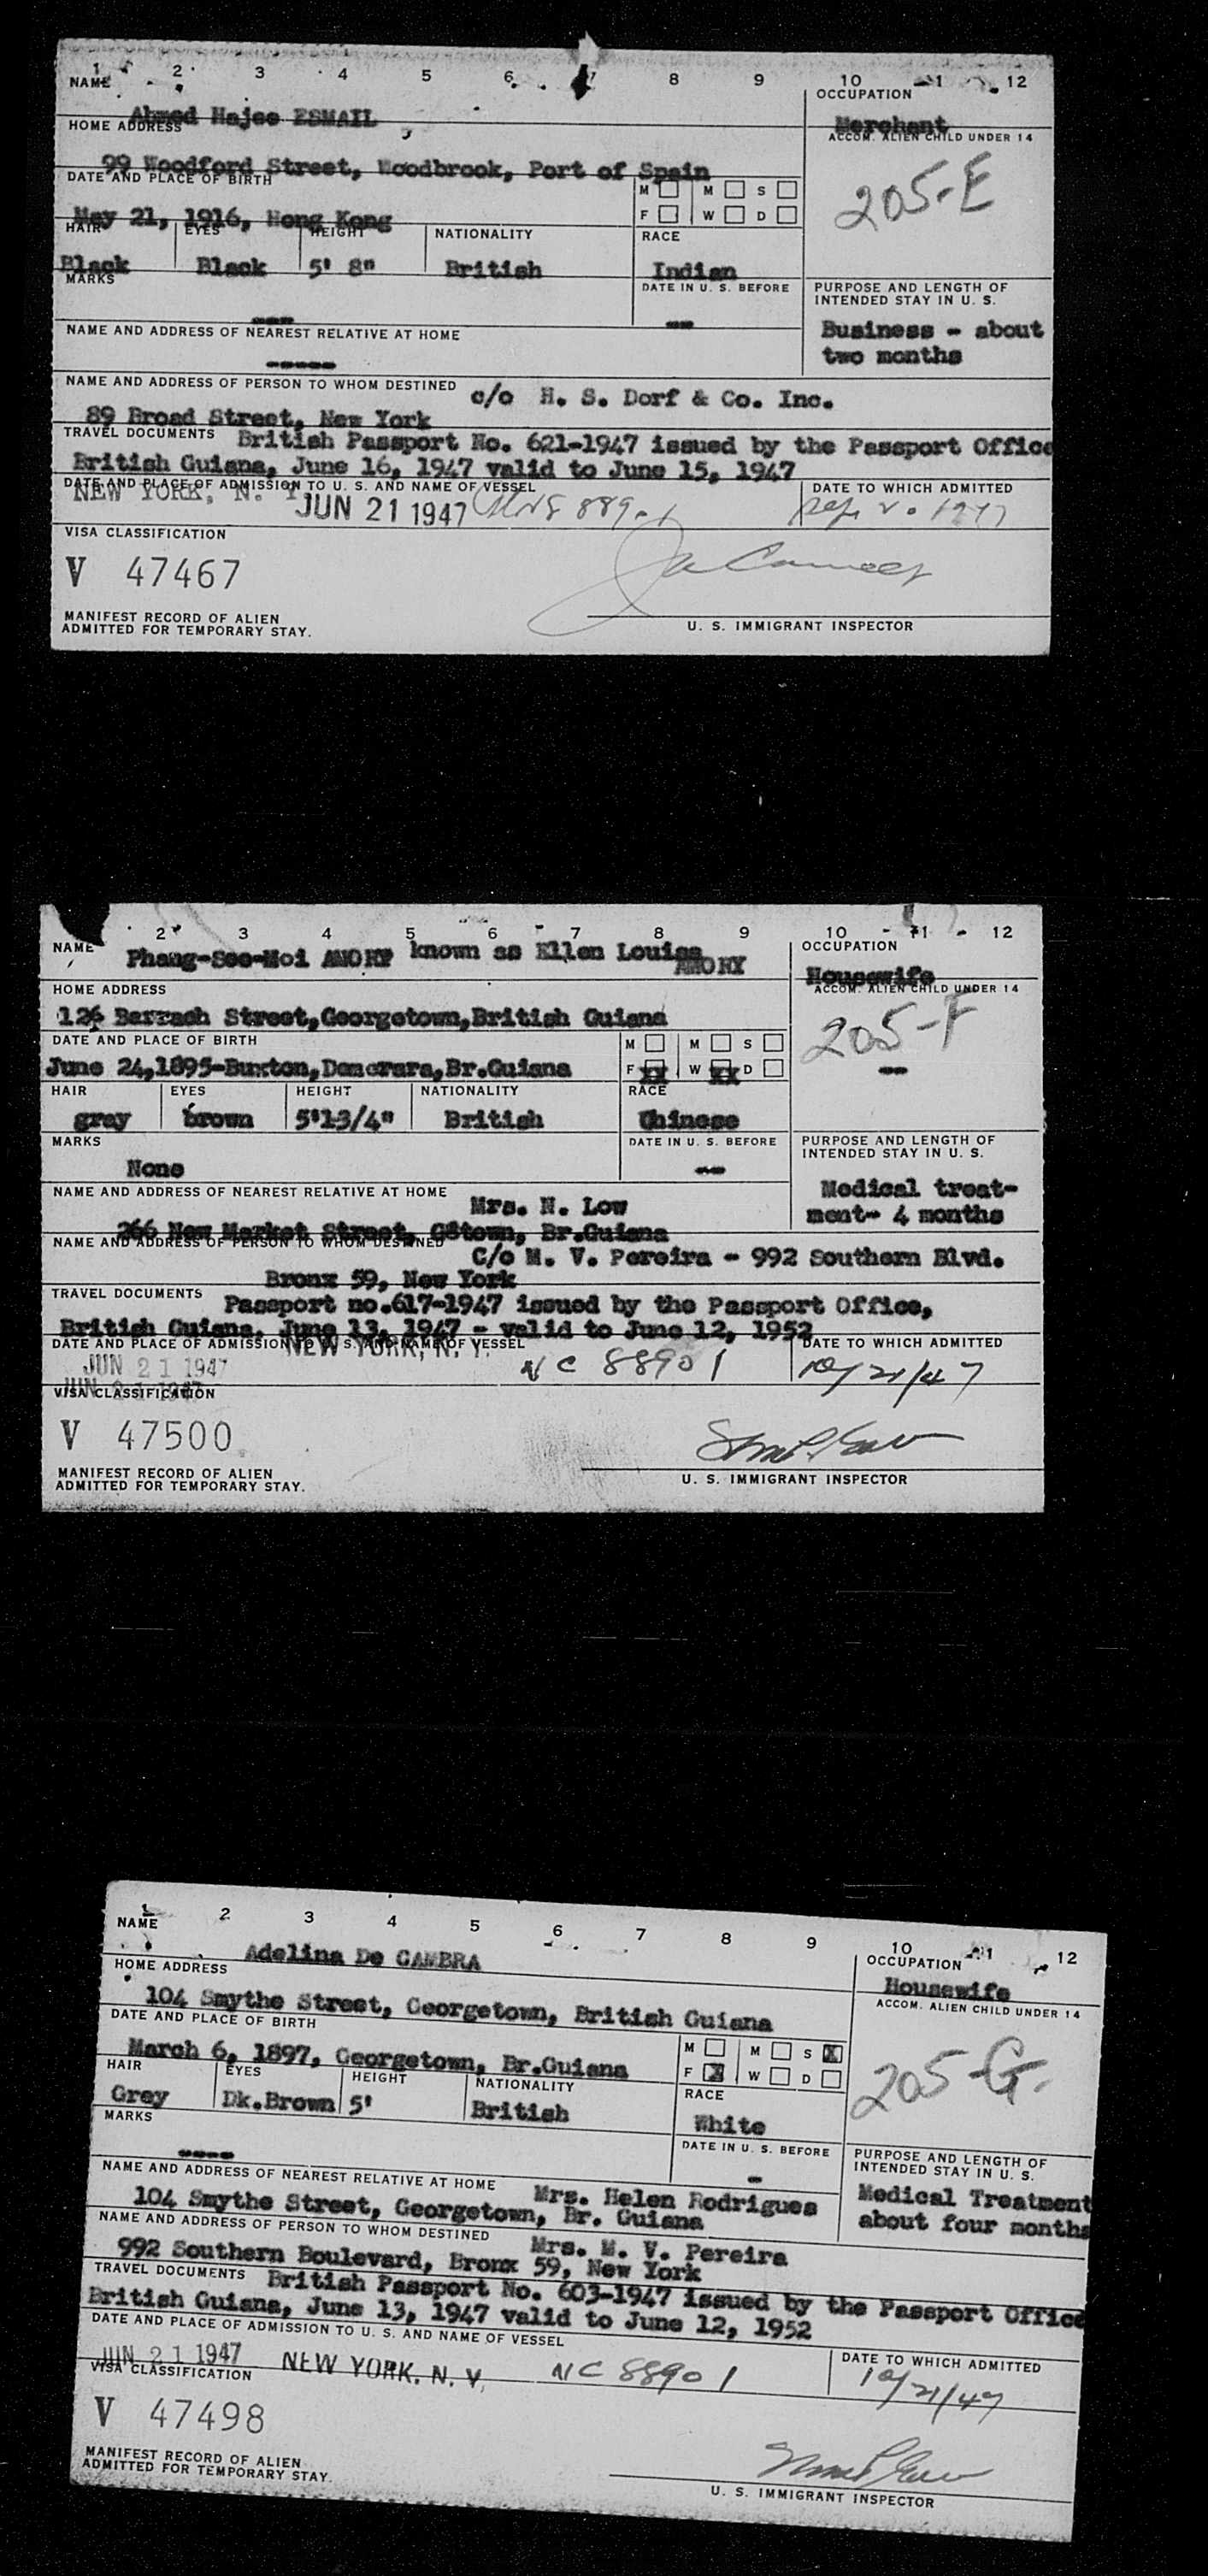 1 2 3 4 5 6 7 8 9 10 11 12
NAME OCCUPATION
Ahmed Hajee ESMAIL Merchant
HOME ADDRESS ACCOM. ALIEN CHILD UNDER 14
99 Woodford Street, Woodbrook, Port of Spain 205-E
DATE AND PLACE OF BIRTH M M S
May 21, 1916, Hong Kong F W D
HAIR EYES HEIGHT NATIONALITY RACE
Black Black 5' 8" British Indian
MARKS DATE IN U. S. BEFORE PURPOSE AND LENGTH OF INTENDED STAY IN U. S.
--- -- Business - about
two months
NAME AND ADDRESS OF NEAREST RELATIVE AT HOME
-----
NAME AND ADDRESS OF PERSON TO WHOM DESTINED c/o H. S. Dorf & Co. Inc.
89 Broad Street, New York
TRAVEL DOCUMENTS British Passport No. 621-1947 issued by the Passport Office
British Guiana, June 16, 1947 valid to June 15, 1947
DATE AND PLACE OF ADMISSION TO U. S. AND NAME OF VESSEL DATE TO WHICH ADMITTED
NEW YORK, N. Y. JUN 21 1947
VISA CLASSIFICATION
V 47467
MANIFEST RECORD OF ALIEN
ADMITTED FOR TEMPORARY STAY. U. S. IMMIGRANT INSPECTOR
2 3 4 5 6 7 8 9 10 11 12
NAME OCCUPATION
Phang-Soo-Moi AMOHY known as Ellen Louisa AMOHY Housewife
HOME ADDRESS ACCOM. ALIEN CHILD UNDER 14
126 Barrach Street,Georgetown,British Guiana 205-F
DATE AND PLACE OF BIRTH M M S
June 24,1895-Buxton,Demerara,Br.Guiana F XX W XX D --
HAIR EYES HEIGHT NATIONALITY RACE
grey brown 5'1-3/4" British Chinese
MARKS DATE IN U. S. BEFORE PURPOSE AND LENGTH OF INTENDED STAY IN U. S.
None -- Medical treat-
ment- 4 months
NAME AND ADDRESS OF NEAREST RELATIVE AT HOME Mrs. N. Low
266 New Market Street, G@town, Br.Guiana
NAME AND ADDRESS OF PERSON TO WHOM DESTINED C/o M. V. Pereira - 992 Southern Blvd.
Bronx 59, New York
TRAVEL DOCUMENTS Passport no.617-1947 issued by the Passport Office,
British Guiana, June 13, 1947 - valid to June 12, 1952
DATE AND PLACE OF ADMISSION TO U. S. AND NAME OF VESSEL DATE TO WHICH ADMITTED
JUN 21 1947 NEW YORK, N. Y. NC 88901 10/21/47
JUN 21 1947
VISA CLASSIFICATION
V 47500
MANIFEST RECORD OF ALIEN
ADMITTED FOR TEMPORARY STAY. U. S. IMMIGRANT INSPECTOR
1 2 3 4 5 6 7 8 9 10 11 12
NAME OCCUPATION
Adelina De CAMBRA Housewife
HOME ADDRESS ACCOM. ALIEN CHILD UNDER 14
104 Smythe Street, Georgetown, British Guiana 205-G.
DATE AND PLACE OF BIRTH M M S X
March 6, 1897, Georgetown, Br.Guiana F X W D
HAIR EYES HEIGHT NATIONALITY RACE
Grey Dk.Brown 5' British White
MARKS DATE IN U. S. BEFORE PURPOSE AND LENGTH OF INTENDED STAY IN U. S.
---- - Medical Treatment
about four months
NAME AND ADDRESS OF NEAREST RELATIVE AT HOME Mrs. Helen Rodrigues
104 Smythe Street, Georgetown, Br. Guiana
NAME AND ADDRESS OF PERSON TO WHOM DESTINED Mrs. M. V. Pereira
992 Southern Boulevard, Bronx 59, New York
TRAVEL DOCUMENTS British Passport No. 603-1947 issued by the Passport Office
British Guiana, June 13, 1947 valid to June 12, 1952
DATE AND PLACE OF ADMISSION TO U. S. AND NAME OF VESSEL DATE TO WHICH ADMITTED
JUN 21 1947 NEW YORK, N. Y. NC 88901 10/21/47
VISA CLASSIFICATION
V 47498
MANIFEST RECORD OF ALIEN
ADMITTED FOR TEMPORARY STAY. U. S. IMMIGRANT INSPECTOR